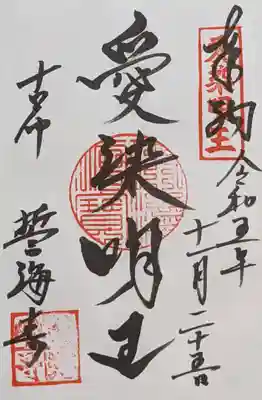 奉拝
令和五年
十一月二十五日
愛染明王
古仲
誓海寺